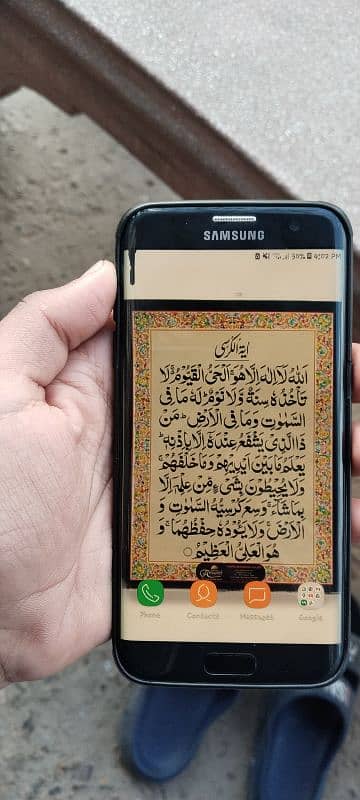 SAMSUNG
50% 4:02 PM
اٰیۃ الکرسی
اَللّٰهُ لَآ اِلٰهَ اِلَّا هُوَ ۚ اَلْحَیُّ الْقَیُّوْمُ ۚ لَا
تَاْخُذُهٗ سِنَةٌ وَّ لَا نَوْمٌ ؕ لَهٗ مَا فِی
السَّمٰوٰتِ وَ مَا فِی الْاَرْضِ ؕ مَنْ
ذَا الَّذِیْ یَشْفَعُ عِنْدَهٗۤ اِلَّا بِاِذْنِهٖ ؕ
یَعْلَمُ مَا بَیْنَ اَیْدِیْهِمْ وَ مَا خَلْفَهُمْ ۚ
وَ لَا یُحِیْطُوْنَ بِشَیْءٍ مِّنْ عِلْمِهٖۤ اِلَّا
بِمَا شَآءَ ۚ وَسِعَ كُرْسِیُّهُ السَّمٰوٰتِ وَ
الْاَرْضَ ۚ وَ لَا یَـُٔوْدُهٗ حِفْظُهُمَا ۚ وَ
هُوَ الْعَلِیُّ الْعَظِیْمُ
Phone Contacts Messages Google